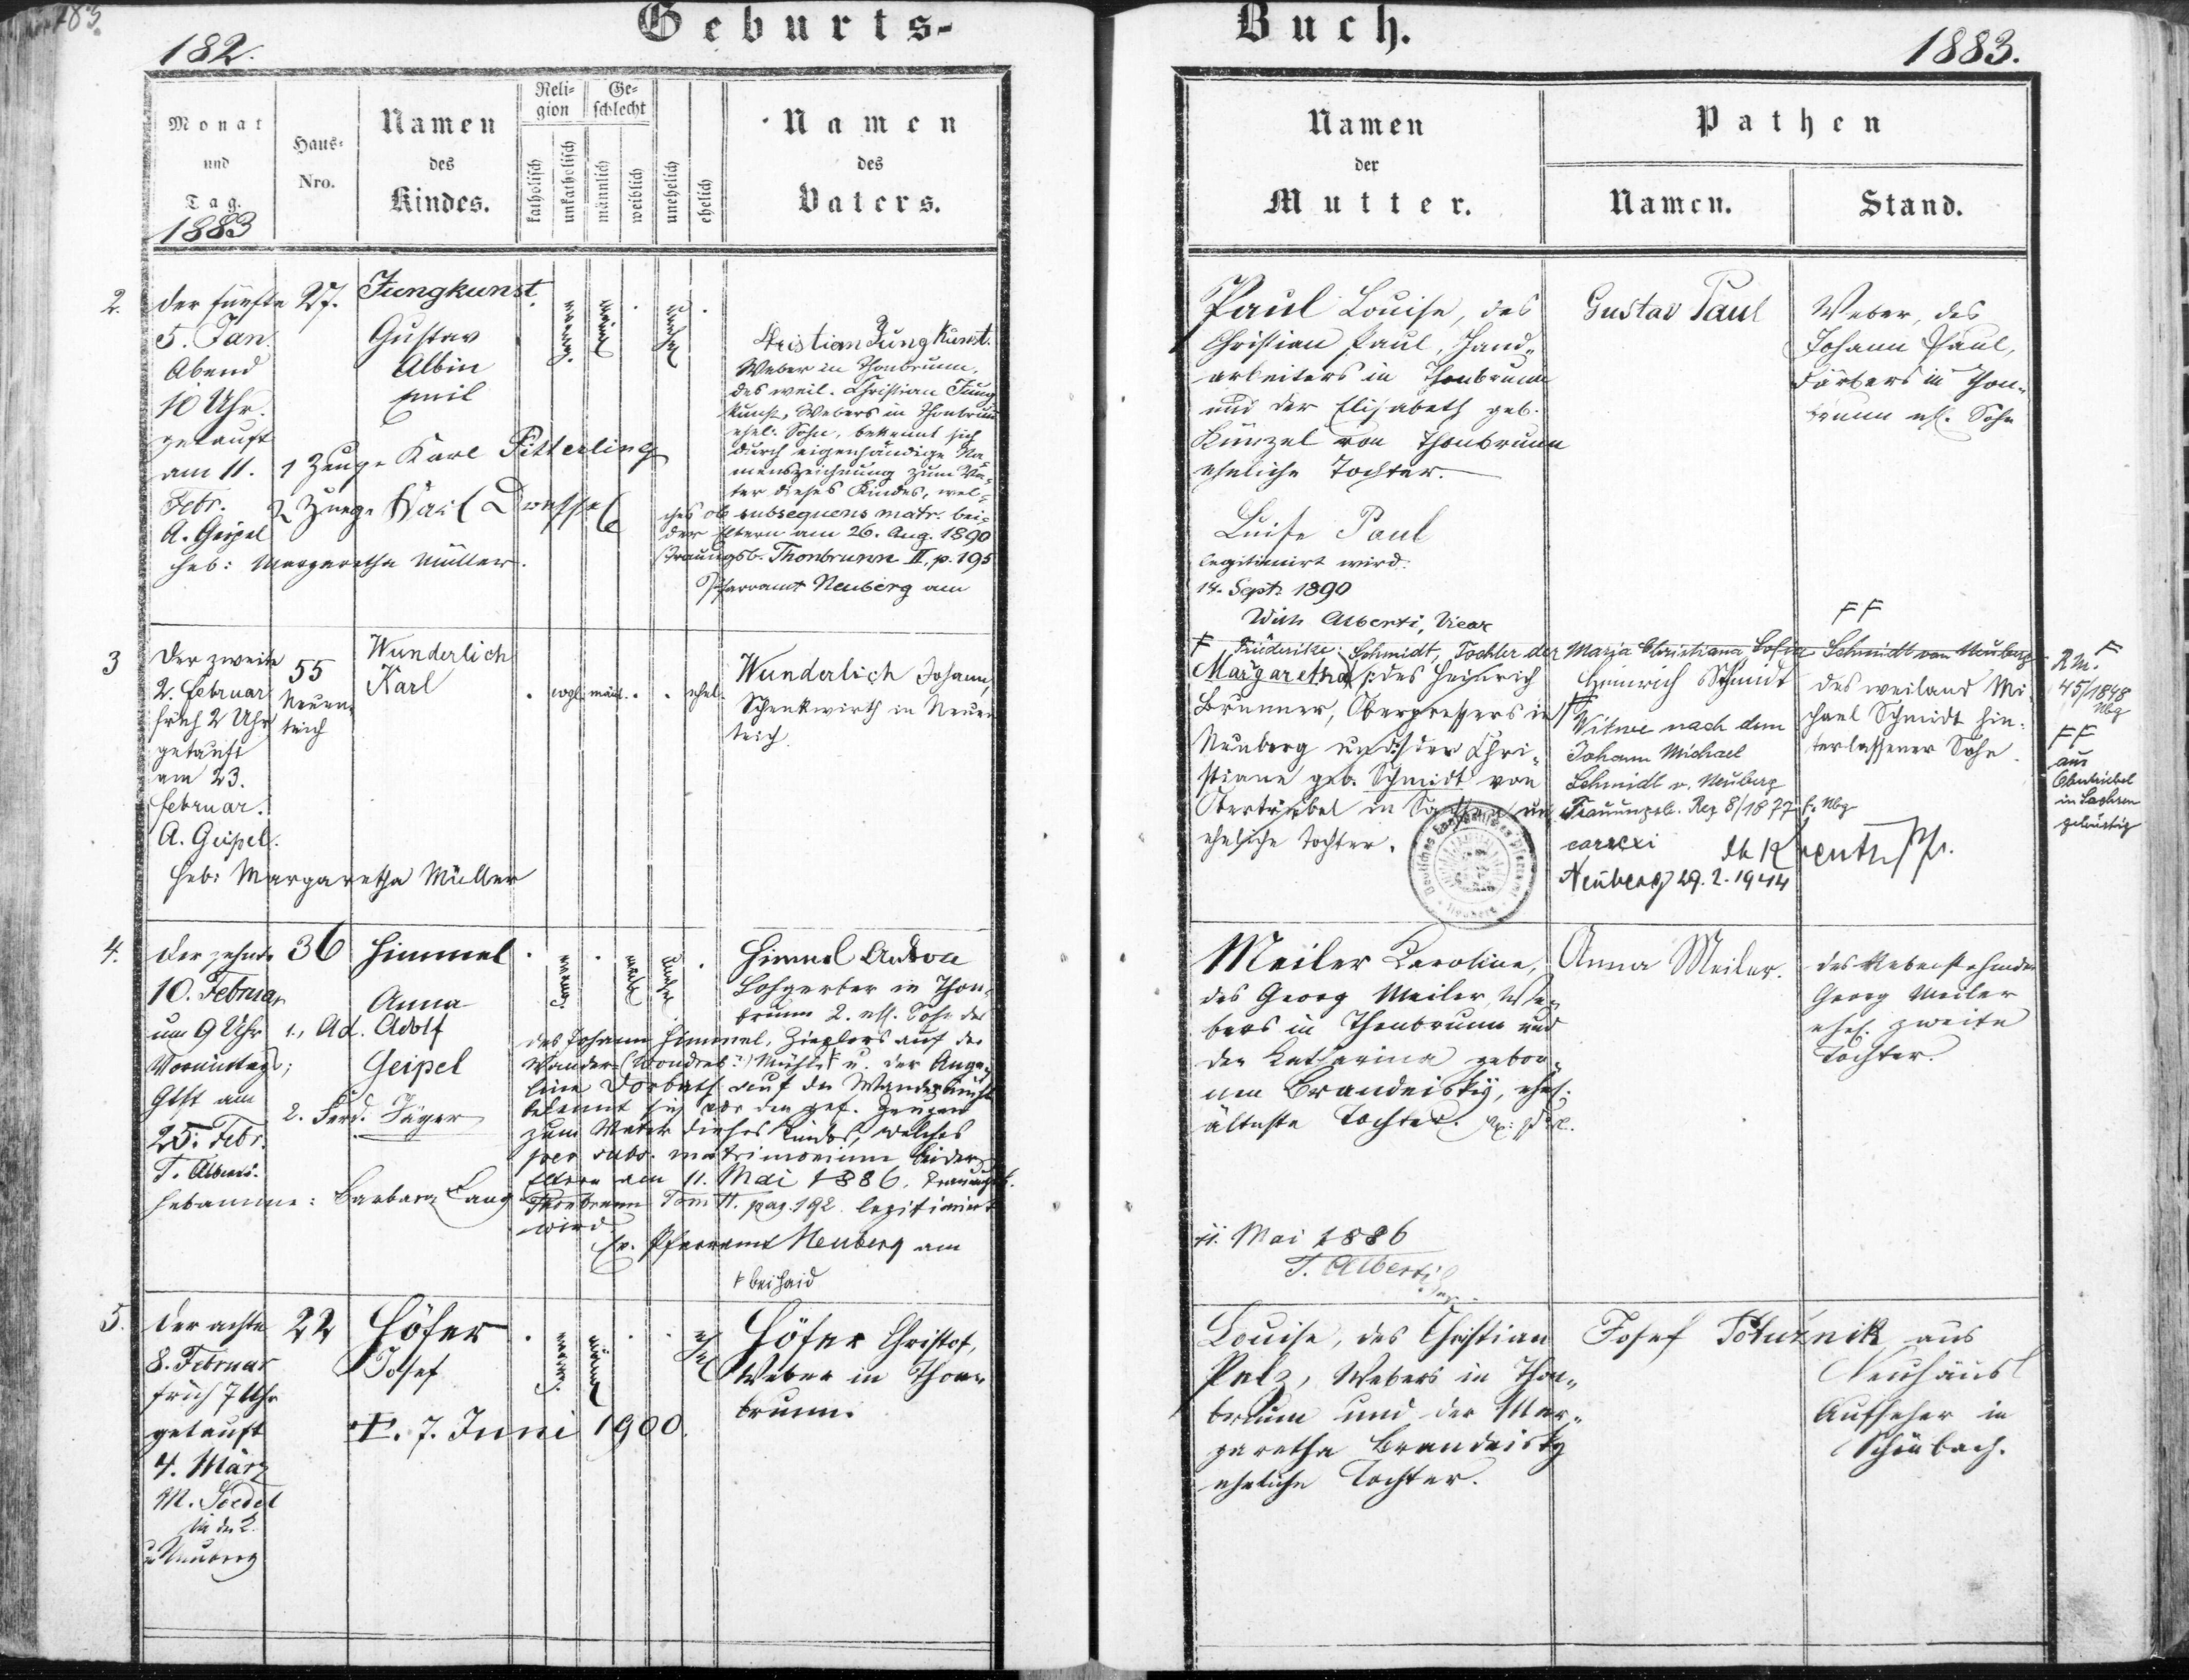 Geburts-
Buch.
182.
1883.
Monat
und
Tag.
1883
Haus-
Nro.
Namen
des
Kindes.
Reli-
gion
katholisch
unkatholisch
Ge-
schlecht
männlich
weiblich
unehelich
ehelich
Namen
des
Vaters.
Namen
der
Mutter.
Pathen
Namen.
Stand.
2.
der fünfte
5. Jan.
Abend
10 Uhr.
getauft
am 11.
Febr.
A. Geipel
Heb: Margaretha Müller.
27.
Jungkunst
Gustav
Albin
Emil
1 Zeuge Karl Pitterling
2 Zeuge Karl
Christian Jungkunst.
Weber in Thonbrunn,
des weil. Christian Jung
kunst, Webers in Thonbrunn
ehel. Sohn, bekennt sich
durch eigenhändige Na-
menszeichnung zum Va-
ter dieses Kindes, wel-
ches ob subsequens matr. bei-
der Eltern am 26. Aug. 1890
Trauungsb. Thonbrunn II, p. 195
Pfarramt Neuberg am
Paul Louise, des
Christian Paul, Hand-
arbeiters in Thonbrunn
und der Elisabeth geb.
Künzel von Thonbrunn
eheliche Tochter.
Luise Paul
legitimirt wird.
14. Sept. 1890
Alberti, Vicar
Gustav Paul
Weber, des
Johann Paul,
Färbers in Thon-
brunn ehl. Sohn
3
Der zweite
2. Februar
früh 2 Uhr
getauft
am 23.
Februar.
A. Geipel.
Heb: Margaretha Müller
55
Neuen-
teich
Wunderlich
Karl
evgl. männl. ehel.
Wunderlich Johann,
Schenkwirth in Neuen
teich.
F Friederike: Schmidt, Tochter der Maria Christiana Sofie Schmidt von Neuberg
Margaretha /: des Heinrich
Brunner, in
Neuberg und :/ der Chri-
stiane geb. Schmidt von
Obertriebel in Sachsen un
eheliche Tochter.
Heinrich Schmidt
FF
Witwe nach dem
Johann Michael
Schmidt v. Neuberg
Trauungsb. Reg 8/1877 f. Nbg
correxi
Neuberg 29.2.1944
FF
des weiland Mi-
chael Schmidt hin-
terlassener Sohn.
F
45/1848
Nbg
FF
aus
Obertriebel
in Sachsen
gebürtig
4.
der zehnte
10. Februar
um 9 Uhr
Vormittags;
Gtft am
25. Febr.
T. Alberti.
Hebamme: Barbara Lang
36
Himmel
Anna
1., Ad. Adolf
Geipel
2. Ferd. Jäger
Himmel Anton
Lohgerber in Thon-
brunn 2. ehl. Sohn des
des Johann Himmel, Zieglers auf der
Wander- (Wondreb?) Mühle F u. der Ange-
line Dorbath auf der Wandermühle
bekennt sich vor den gef. Zeugen
zum Vater dieses Kindes, welches
per subs. matrimonium beider
Eltern am 11. Mai 1886. Trauungsb.
Thonbrunn Tom II. pag. 192. legitimirt
wird
Ev. Pfarramt Neuberg am
F bei Haid
Meiler Karoline,
des Georg Meiler, We-
bers in Thonbrunn und
der Katharina gebor-
nen Brandeisky, ehel.
älteste Tochter.
11. Mai 1886
T. Alberti
Anna Meiler.
des Nebenstehenden
Georg Meiler
ehel. zweite
Tochter.
5.
der achte
8. Februar
früh 7 Uhr
getauft
4. März
M. Seidel
Neuberg
22
Höfer
Josef
†. 7. Juni 1900.
Höfer Christof,
Weber in Thon-
brunn.
Louise, des Christian
Pelz, Webers in Thon-
brunn und der Mar-
garetha Brandeisky
eheliche Tochter.
Josef Potužnik aus
Neuhäusl
Aufseher in
Schönbach.